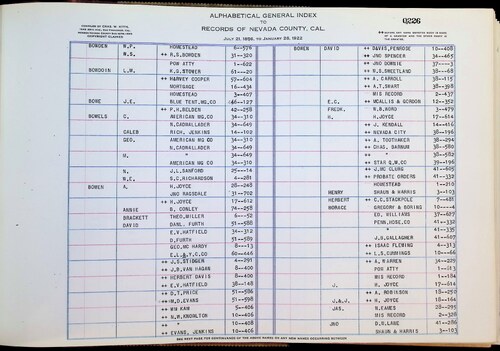 ALPHABETICAL GENERAL INDEX
TO
RECORDS OF NEVADA COUNTY, CAL.
JULY 21, 1856, TO JANUARY 28, 1922
0226
BOWDEN W.P. HOMESTEAD 6--578
W.S. ++ R.S. BOWDEN 31--320
POW ATTY 1--622
BOWDOIN L.W. H.S. STOWER 61--20
++ HARVEY COOPER 57--604
MORTGAGE 16--434
HOMESTEAD 3--407
BOWE J.E. BLUE TENT, MG, CO 46-127
++ P.H. BELDEN 42--258
BOWELS C. AMERICAN MG, CO 34--310
N. CADWALLADER 34--649
CALEB RICH, JENKINS 14--102
GEO. AMERICAN MG CO 34--310
N. CADWALLADER 34--649
H. " 34--649
AMERICAN MG CO 34--310
N. J.L. SANFORD 25--14
N.E. S.C. RICHARDSON 4--281
BOWEN A. H. JOYCE 28--248
JNO RAGSDALE 31--702
++ H. JOYCE 17--612
ANNIE B. CONLEY 74--258
BRACKETT THEO, MILLER 6--52
DAVID DANL. FURTH 51--588
E.V. HATFIELD 34--312
D. FURTH 51--589
GEO, MC HARDY 8--13
E.L.& Y.C. CO 60--446
++ J.S. STIDGER 4--291
++ J.B. VAN HAGAN 8--400
++ HERBERT DAVIS 8--400
++ E.V. HATFIELD 38--148
++ D.T. PRICE 51--586
++ W.D. EVANS 51--598
++ WM RAW 5--406
++ N.W. KNOWLTON 10--406
++ " 10--408
++ EVANS, JENKINS 10--406
BOWEN DAVID ++ DAVIS, PENROSE 10--408
++ JNO SPENGER 34--465
++ JNO DOWNIE 37----3
++ W.B. SWEETLAND 38--68
++ A. CARROLL 38--415
++ A.T. BHART 38--398
MIS RECORD 2--437
E.G. ++ MCALLIS & GORDON 12--352
FREDK. N.B. WORD 3--479
H. H. JOYCE 17--614
++ J. KENDALL 14--416
++ NEVADA CITY 38--196
++ A. TOOTHAKER 38--294
++ CHAS, BARNUM 38--580
++ " 38--582
++ STAR Q, M, CO 39--196
++ J, MC CLARG 41--605
++ PROBATE ORDERS 41--332
HOMESTEAD 1--210
HENRY SHAUN & HARRIS 3--103
HERBERT ++ C.C. STACKPOLE 7--481
HORACE GREGORY & BORING 10----4
ED. WILLIAMS 37--637
PENN, HOSE, CO 41--338
" 41--335
J.H. GALLAGHER 41--607
++ ISAAC FLEMING 4--313
++ L.S. CUMMINGS 10--66
++ A, WARREN 34--229
POW ATTY 1--613
MIS RECORD 1--184
J. H, JOYCE 17--614
++ A, ROBINSON 18--250
J.& J. ++ H, JOYCE 18--164
JAS. N. EAMES 28--295
MIS RECORD 2--328
JNO D.N. LANE 41--286
SHAUN & HARRIS 3--103